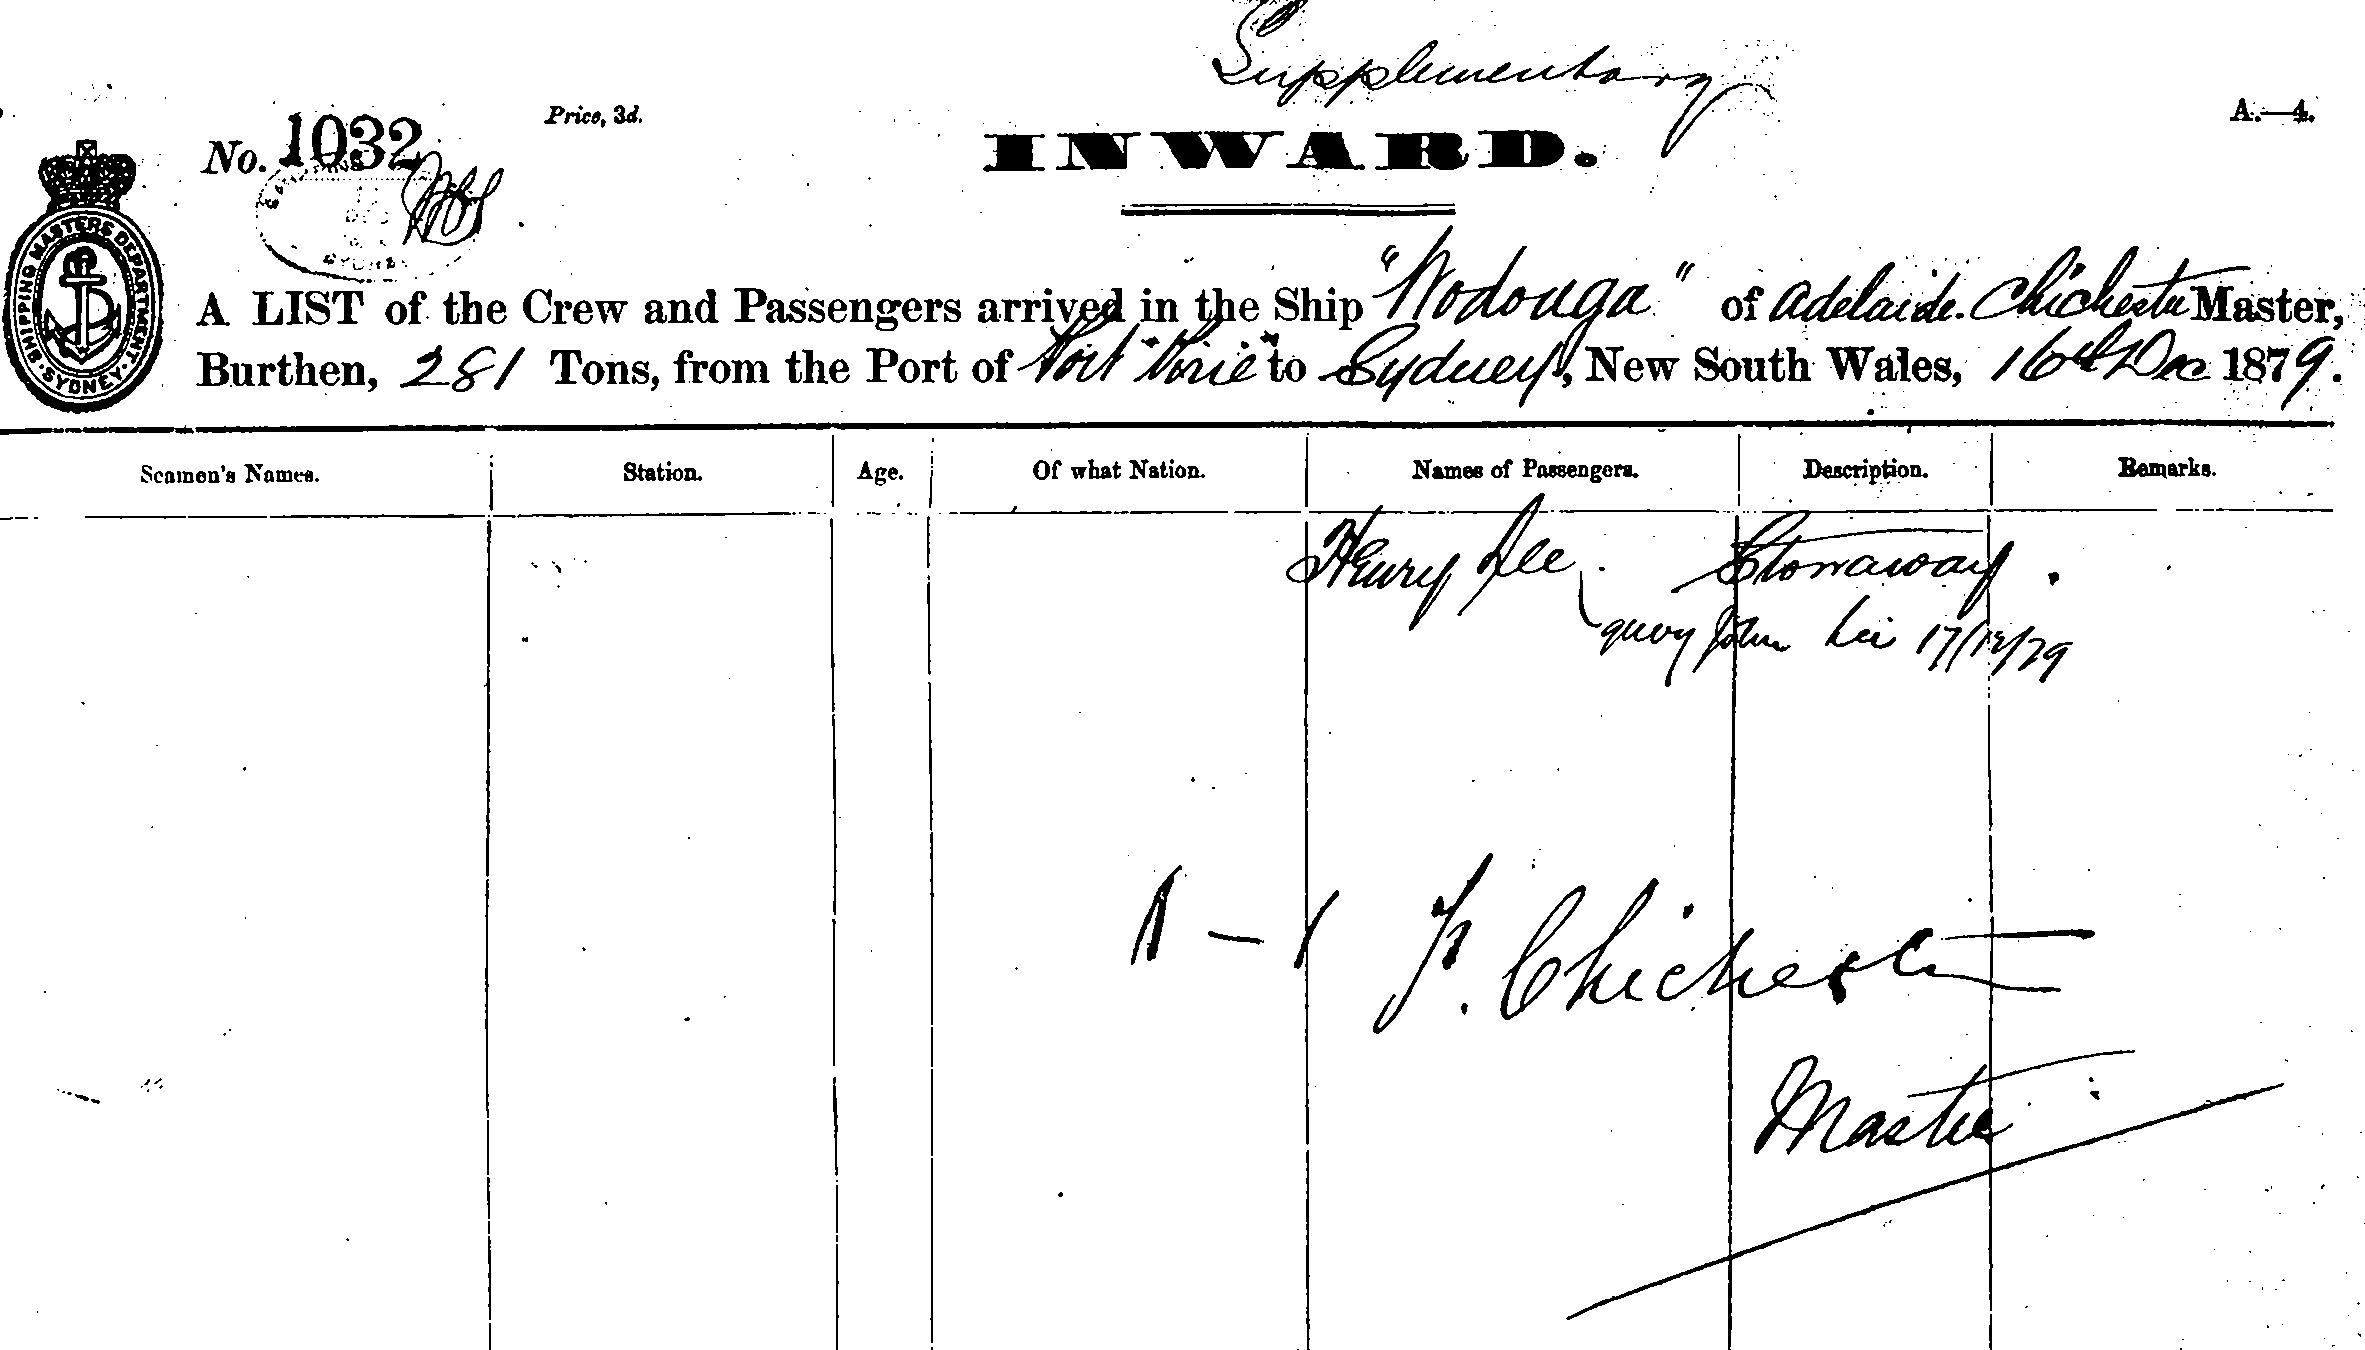 Supplementary
No. 1032
Price, 3d.
INWARD.
A.—4.
SHIPPING MASTERS DEPARTMENT
SYDNEY
A LIST of the Crew and Passengers arrived in the Ship "Wodonga" of Adelaide. Chichester Master,
Burthen, 281 Tons, from the Port of Port Pirie to Sydney, New South Wales, 16th Dec 1879.
Seamen's Names. Station. Age. Of what Nation. Names of Passengers. Description. Remarks.
Henry Lee. Stowaway.
query John Lee 17/12/79
Chichester
Master